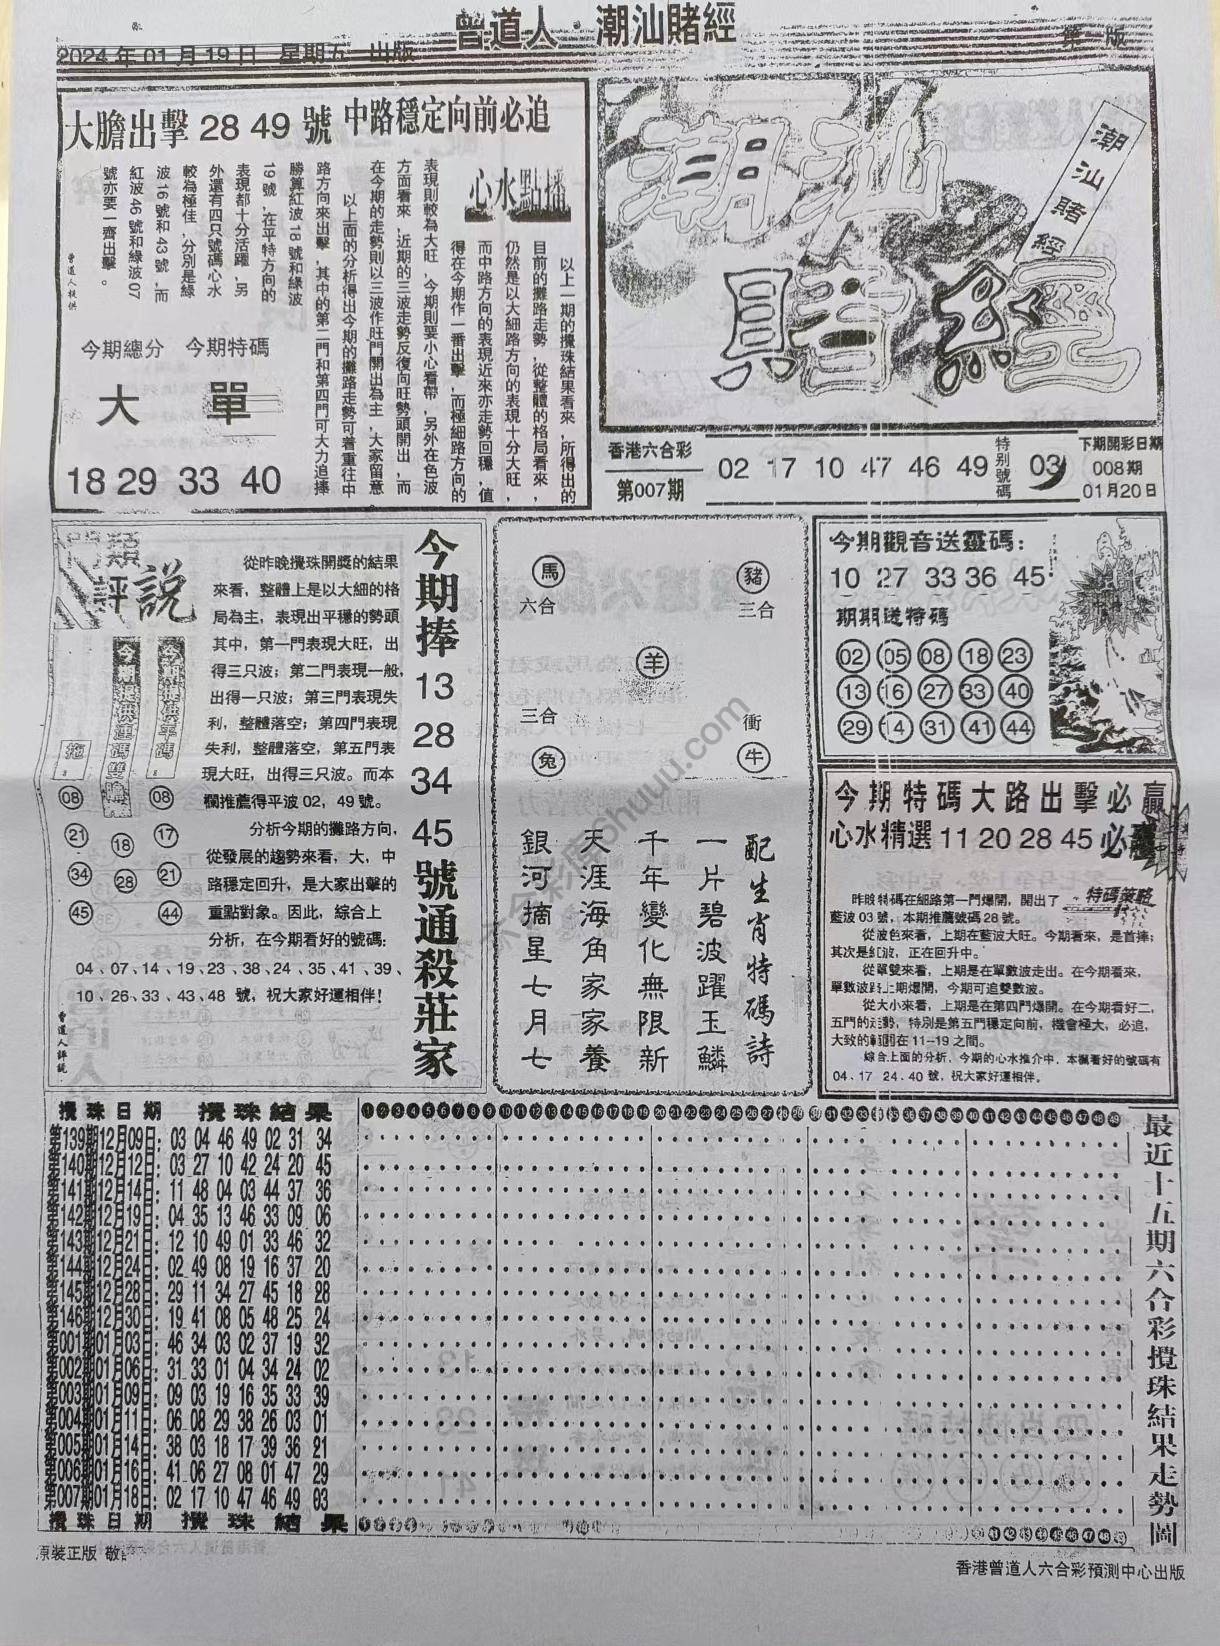 曾道人 潮汕賭經
2024年01月19日 星期五 出版
第一版
大膽出擊 28 49 號
中路穩定向前必追
心水點播
以上一期的攪珠結果看來，所得出的
目前的攤路走勢，從整體的格局看來，
仍然是以大細路方向的表現十分大旺，
而中路方向的表現近來亦走勢回穩，值
得在今期作一番出擊，而極細路方向的
表現則較為大旺，今期則要小心看帶，另外在色波
方面看來，近期的三波走勢反復向旺勢頭開出，而
在今期的走勢則以三波作旺門開出為主，大家留意
以上面的分析得出今期的攤路走勢可着重往中
路方向來出擊，其中的第二門和第四門可大力追捧
勝算紅波18號和綠波
19號，在平特方向的
表現都十分活躍，另
外還有四只號碼心水
較為極佳，分別是綠
波16號和43號，而
紅波46號和綠波07
號亦要一齊出擊。
曾道人提供
今期總分 今期特碼
大 單
18 29 33 40
潮汕賭經
潮汕賭經
香港六合彩
第007期
02 17 10 47 46 49
特別號碼
03
下期開彩日期
008期
01月20日
評說
今期提供連碼雙膽
今期提供平碼
拖
08 21 34 45
18 28
08 17 21 44
從昨晚攪珠開獎的結果
來看，整體上是以大細的格
局為主，表現出平穩的勢頭
其中，第一門表現大旺，出
得三只波；第二門表現一般，
出得一只波；第三門表現失
利，整體落空；第四門表現
失利，整體落空，第五門表
現大旺，出得三只波。而本
欄推薦得平波02，49號。
分析今期的攤路方向，
從發展的趨勢來看，大，中
路穩定回升，是大家出擊的
重點對象。因此，綜合上
分析，在今期看好的號碼：
04、07、14、19、23、38、24、35、41、39、
10、26、33、43、48 號，祝大家好運相伴！
曾道人評說
今期捧 13 28 34 45 號通殺莊家
馬
六合
豬
三合
羊
三合
兔
衝
牛
配生肖特碼詩
一片碧波躍玉鱗
千年變化無限新
天涯海角家家養
銀河摘星七月七
今期觀音送靈碼：
10 27 33 36 45
期期送特碼
02 05 08 18 23
13 16 27 33 40
29 14 31 41 44
今期特碼大路出擊必贏
心水精選 11 20 28 45 必贏
特碼策略
昨晚特碼在細路第一門爆開，開出了
藍波03號，本期推薦號碼28號。
從波色來看，上期在藍波大旺。今期看來，是首捧；
其次是紅波，正在回升中。
從單雙來看，上期是在單數波走出。在今期看來，
單數波路上期爆開，今期可追雙數波。
從大小來看，上期是在第四門爆開。在今期看好二，
五門的走勢，特別是第五門穩定向前，機會極大，必追，
大致的範圍在11-19之間。
綜合上面的分析，今期的心水推介中，本欄看好的號碼有
04、17 24、40 號，祝大家好運相伴。
攪珠日期 攪珠結果
第139期12月09日： 03 04 46 49 02 31 34
第140期12月12日： 03 27 10 42 24 20 45
第141期12月14日： 11 48 04 03 44 37 36
第142期12月19日： 04 35 13 46 33 09 06
第143期12月21日： 12 10 49 01 33 46 32
第144期12月24日： 02 49 08 19 16 37 20
第145期12月28日： 29 11 34 27 45 18 28
第146期12月30日： 19 41 08 05 48 25 24
第001期01月03日： 46 34 03 02 37 19 32
第002期01月06日： 31 33 01 04 34 24 02
第003期01月09日： 09 03 19 16 35 33 39
第004期01月11日： 06 08 29 38 26 03 01
第005期01月14日： 38 03 18 17 39 36 21
第006期01月16日： 41 06 27 08 01 47 29
第007期01月18日： 02 17 10 47 46 49 03
攪珠日期 攪珠結果
最近十五期六合彩攪珠結果走勢圖
原裝正版 敬
香港曾道人六合彩預測中心出版